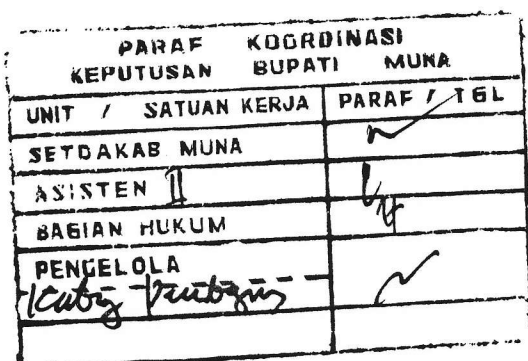 PARAF KOORDINASI
KEPUTUSAN BUPATI MUNA
UNIT / SATUAN KERJA PARAF / TGL
SETDAKAB MUNA
ASISTEN II
BAGIAN HUKUM
PENGELOLA